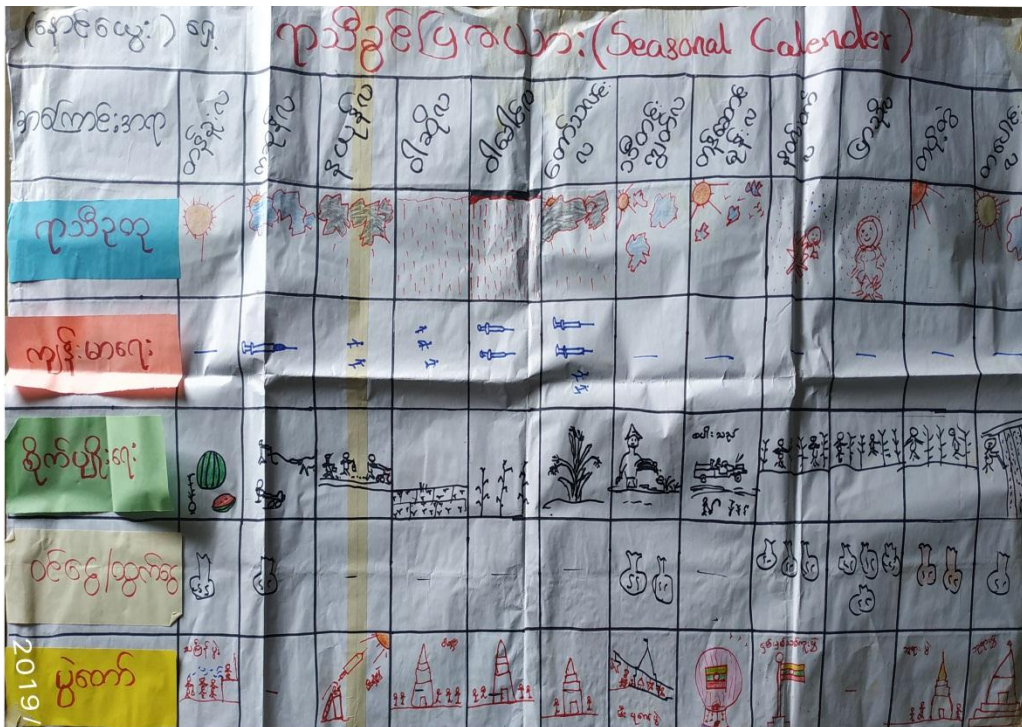 (နောင်ယွေး) ရှေ့ ရာသီခွင်ပြက္ခဒိန် (Seasonal Calender)
အကြောင်းအရာ
တန်ခူးလ
ကဆုန်လ
နယုန်လ
ဝါဆိုလ
ဝါခေါင်လ
တော်သလင်းလ
သီတင်းကျွတ်လ
တန်ဆောင်မုန်းလ
နတ်တော်လ
ပြာသိုလ
တပို့တွဲလ
တပေါင်းလ
ရာသီဥတု
ကျန်းမာရေး
စိုက်ပျိုးရေး
စပါးသည်
ဝင်ငွေ/ထွက်ငွေ
ပွဲတော်
သင်္ကြန်ပွဲ
2019/